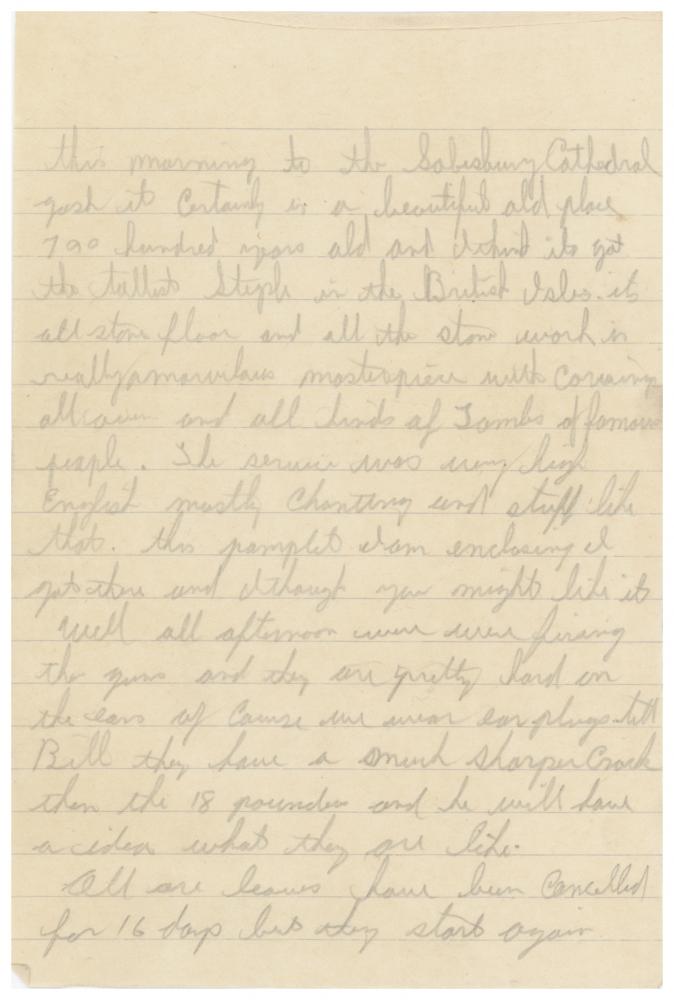 this morning to the Salisbury Cathedral
gosh it Certainly is a beautiful old place
700 hundred years old and I think its got
the tallest Steple in the British Isles. its
all stone floor and all the stone work is
really a marvelous masterpiece with Carving
all over and all kinds of Tombs of famous
people. The service was very high
English mostly Chanting and stuff like
that. this pamplet I am enclosing I
got there and I though you might like it
Well all afternoon were firing
the guns and they are pretty hard on
the ears of Course we wear ear plugs. tell
Bill they have a much sharper Crack
then the 18 pounder and he will have
a idea what they are like.
All are leaves have been Cancelled
for 16 days but they start again